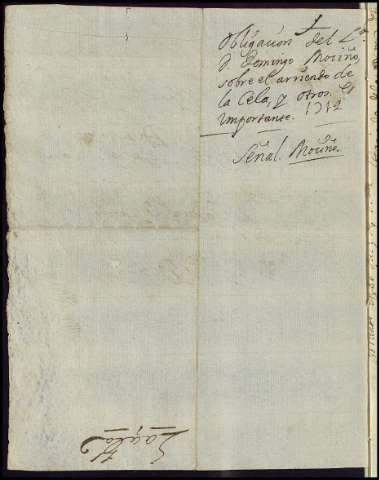 Obligación del L.do
D. Domingo Moriño,
sobre el arriendo de
la Cela, y otros. Es
importante. 1712
Señal. Moriño.